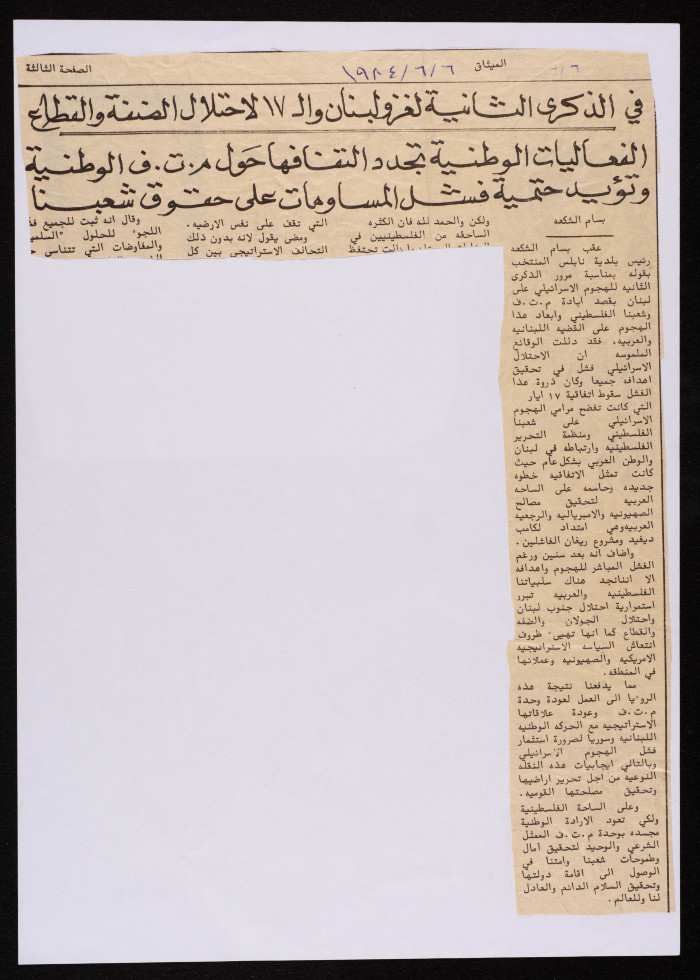 الصفحة الثالثة
الميثاق
١٩٨٤/٦/٦
٦/٦
في الذكرى الثانية لغزو لبنان والـ ١٧ لاحتلال الضفة والقطاع
الفعاليات الوطنية تجدد التفافها حول م.ت.ف الوطنية
وتؤيد حتمية فشل المساومات على حقوق شعبنا
بسام الشكعه
عقب بسام الشكعه
رئيس بلدية نابلس المنتخب
بقوله بمناسبة مرور الذكرى
الثانيه للهجوم الاسرائيلي على
لبنان بقصد ابادة م.ت.ف
وشعبنا الفلسطيني وابعاد هذا
الهجوم على القضيه اللبنانيه
والعربيه، فقد دللت الوقائع
الملموسه ان الاحتلال
الاسرائيلي فشل في تحقيق
اهدافه جميعا وكان ذروة هذا
الفشل سقوط اتفاقية ١٧ ايار
التي كانت تفضح مرامي الهجوم
الاسرائيلي على شعبنا
الفلسطيني ومنظمة التحرير
الفلسطينيه وارتباطه في لبنان
والوطن العربي بشكل عام حيث
كانت تمثل الاتفاقيه خطوه
جديده وحاسمه على الساحه
العربيه لتحقيق مصالح
الصهيونيه والامبرياليه والرجعيه
العربيه وهي امتداد لكامب
ديفيد ومشروع ريغان الفاشلين .
واضاف انه بعد سنين ورغم
الفشل المباشر للهجوم واهدافه
الا اننا نجد هناك سلبياتنا
الفلسطينيه والعربيه تبرر
استمرارية احتلال جنوب لبنان
واحتلال الجولان والضفه
والقطاع كما انها تهيىء ظروف
انتعاش السياسه الاستراتيجيه
الامريكيه والصهيونيه وعملائها
في المنطقه .
مما يدفعنا نتيجة هذه
الرؤيا الى العمل لعودة وحدة
م.ت.ف وعودة علاقاتها
الاستراتيجيه مع الحركه الوطنيه
اللبنانيه وسوريا لضرورة استثمار
فشل الهجوم الاسرائيلي
وبالتالي ايجابيات هذه النقله
النوعيه من اجل تحرير اراضيها
وتحقيق مصلحتها القوميه .
وعلى الساحة الفلسطينية
ولكي تعود الارادة الوطنية
مجسده بوحدة م.ت.ف الممثل
الشرعي والوحيد لتحقيق آمال
وطموحات شعبنا وامتنا في
الوصول الى اقامة دولتها
وتحقيق السلام الدائم والعادل
لنا وللعالم .
ولكن والحمد لله فان الكثره
الساحقه من الفلسطينيين في
ما زالت تحتفظ
التي تقف على نفس الارضيه .
ومضى يقول لانه بدون ذلك
التحالف الاستراتيجي بين كل
وقال انه ثبت للجميع
اللجوء للحلول "السلمية
والمفاوضات التي تتناسى